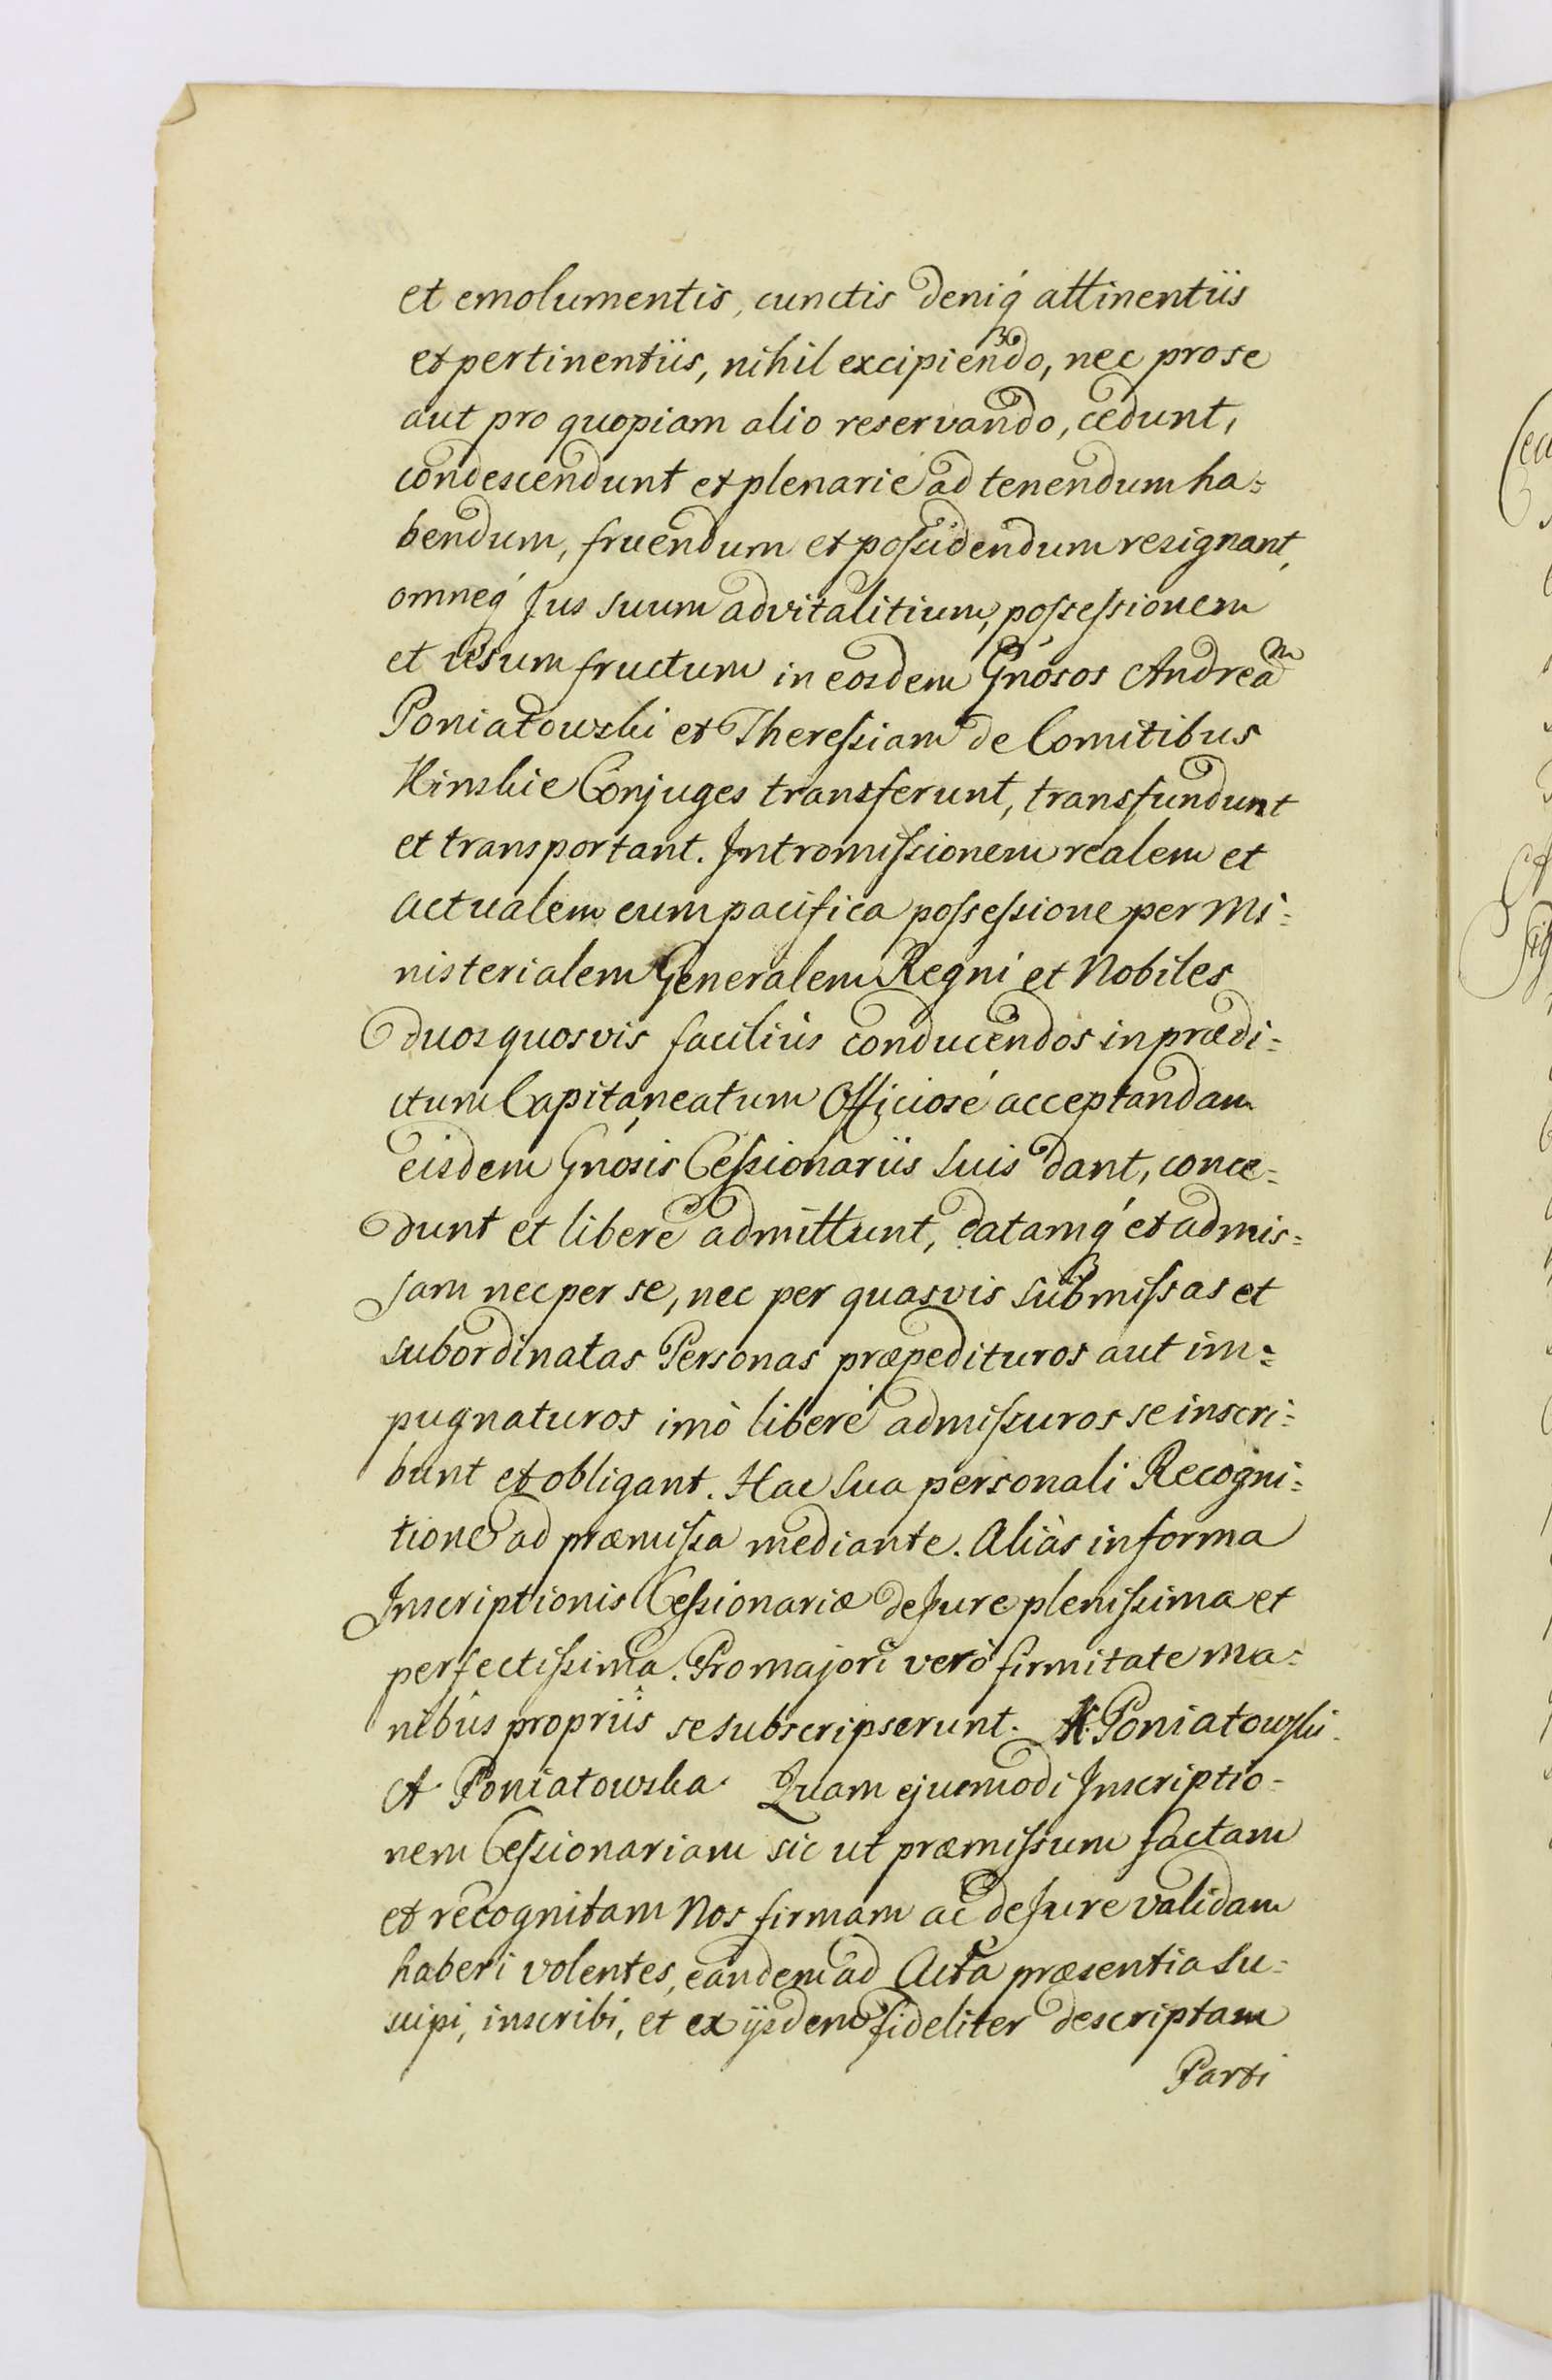 et emolumentis, cunctis deniq́ attinentiis
et pertinentiis, nihil excipiendo, nec pro se
aut pro quopiam alio reservando, cedunt,
condescendunt et plenarié ad tenendum ha=
bendum, fruendum et possidendum resignant,
omneq́ Jus suum advitalitium, possessionem
et usum fructum in eosdem Gnósos Andream
Poniatowski et Theressiam de Comitibus
Kinskie Conjuges transferunt, transfundunt
et transportant. Intromissionem realem et
actualem cum pacifica possessione per Mi=
nisterialem Generalem Regni et Nobiles
duos quosvis faciliús conducendos in prædi=
ctum Capitaneatum Officiosé acceptandam
eisdem Gnósis Cessionariis suis dant, conce=
dunt et liberé admittunt, datamq́ et admis=
sam nec per se, nec per quasvis submissas et
subordinatas Personas præpedituros aut im=
pugnaturos imò liberé admissuros se inscri=
bunt et obligant. Hac sua personali Recogni=
tione ad præmissa mediante. Aliàs in forma
Inscriptionis Cessionariæ de Jure plenissima et
perfectissima. Pro majori verò firmitate ma=
nibus propriis se subscripserunt. K. Poniatowski.
A Poniatowska. Quam ejusmodi Inscriptio=
nem Cessionariam sic ut præmissum factam
et recognitam Nos firmam ac de Jure validam
haberi volentes, eandem ad Acta præsentia su=
scipi, inscribi, et ex ijsdem fideliter descriptam
Parti